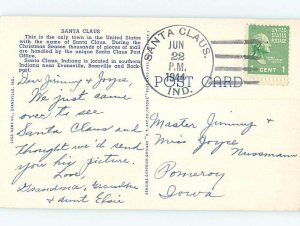 SANTA CLAUS
This is the only town in the United States
with the name of Santa Claus. During the
Christmas Season thousands of pieces of mail
are handled by the unique Santa Claus Post
Office.
Santa Claus, Indiana is located in southern
Indiana near Evansville, Boonville and Rock-
port.
Dear Jimmy & Joyce,
We just came
over to see
Santa Claus and
thought we'd send
you his picture.
Love,
Grandma, Grandpa
& Aunt Elsie
SANTA CLAUS.
JUN
22
P.M.
IND.
POST CARD
1 CENT 1
Master Jimmy &
Miss Joyce
Nussmann
Pomeroy
Iowa